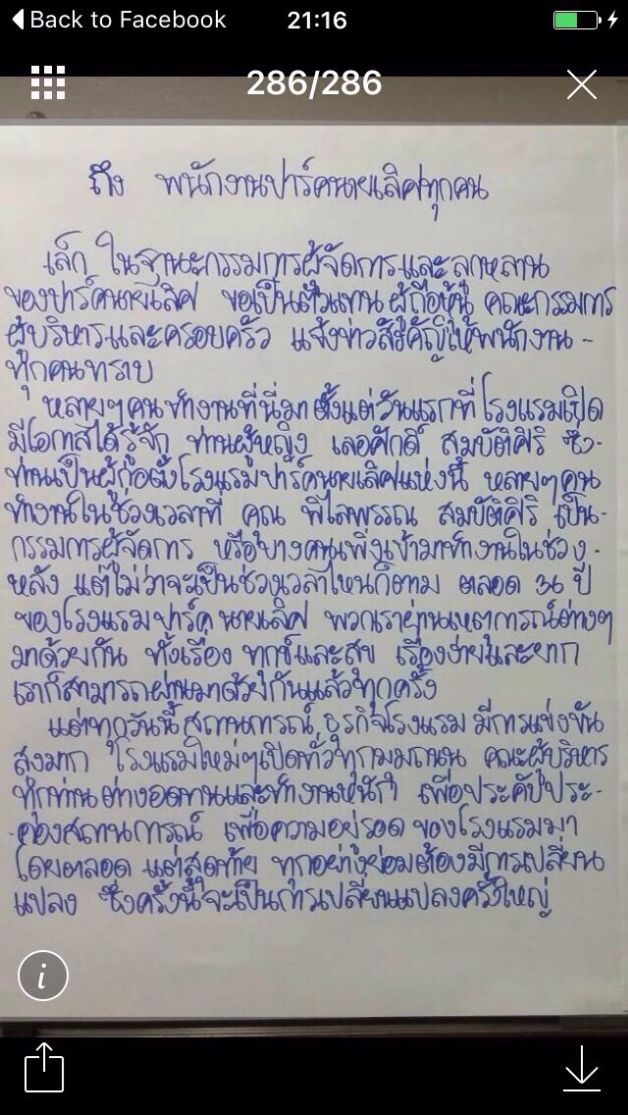 Back to Facebook
21:16
286/286
ถึง พนักงานปาร์คนายเลิศทุกคน
เล็ก ในฐานะกรรมการผู้จัดการและลูกหลาน
ของปาร์คนายเลิศ ขอเป็นตัวแทน ผู้ถือหุ้น คณะกรรมการ
ผู้บริหารและครอบครัว แจ้งข่าวสำคัญให้พนักงาน -
ทุกคนทราบ
หลายๆคนทำงานที่นี่มา ตั้งแต่วันแรกที่โรงแรมเปิด
มีโอกาสได้รู้จัก ท่านผู้หญิง เลอศักดิ์ สมบัติศิริ ซึ่ง-
ท่านเป็นผู้ก่อตั้งโรงแรมปาร์คนายเลิศแห่งนี้ หลายๆคน
ทำงานในช่วงเวลาที่ คุณ พิไลพรรณ สมบัติศิริ เป็น-
กรรมการผู้จัดการ หรือบางคนเพิ่งเข้ามาทำงานในช่วง-
หลัง แต่ไม่ว่าจะเป็นช่วงเวลาไหนก็ตาม ตลอด 36 ปี
ของโรงแรมปาร์ค นายเลิศ พวกเราผ่านเหตุการณ์ต่างๆ
มาด้วยกัน ทั้งเรื่อง ทุกข์และสุข เรื่องง่ายและยาก
เราก็สามารถผ่านมาด้วยกันแล้วทุกครั้ง
แต่ทุกวันนี้ สถานการณ์ ธุรกิจโรงแรม มีการแข่งขัน
สูงมาก โรงแรมใหม่ๆเปิดทั่วทุกมุมถนน คณะผู้บริหาร
ทุกท่าน ต่างอดทนและทำงานหนัก เพื่อประคับประ-
-คองสถานการณ์ เพื่อความอยู่รอด ของโรงแรมมา
โดยตลอด แต่สุดท้าย ทุกอย่างย่อมต้องมีการเปลี่ยน
แปลง ซึ่งครั้งนี้จะเป็นการเปลี่ยนแปลงครั้งใหญ่